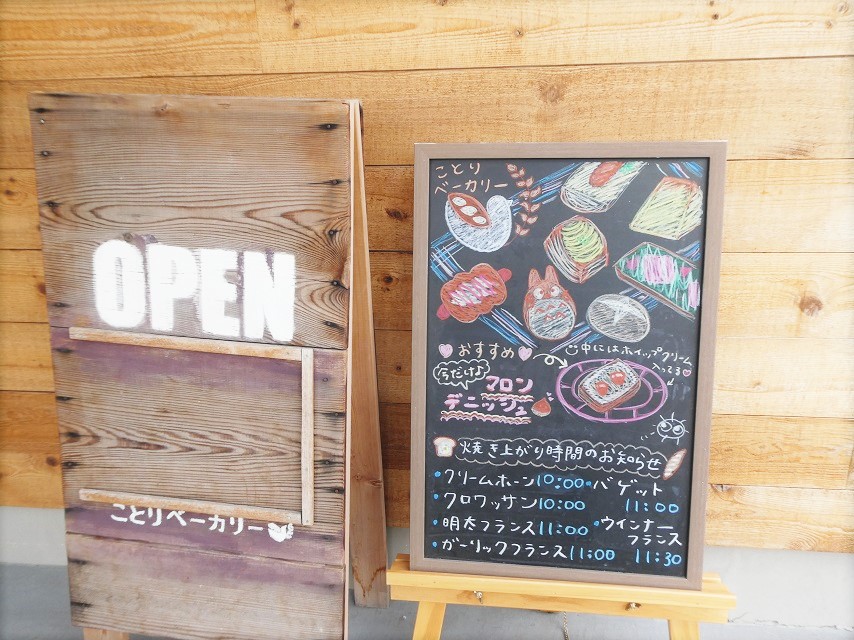 OPEN
ことりベーカリー
ことり
ベーカリー
おすすめ
中にはホイップクリーム
入ってる
今だけよ
マロン
デニッシュ
焼き上がり時間のお知らせ
・クリームホーン10:00
・クロワッサン10:00
・明太フランス11:00
・ガーリックフランス11:00
・バゲット
11:00
・ウインナー
フランス
11:30